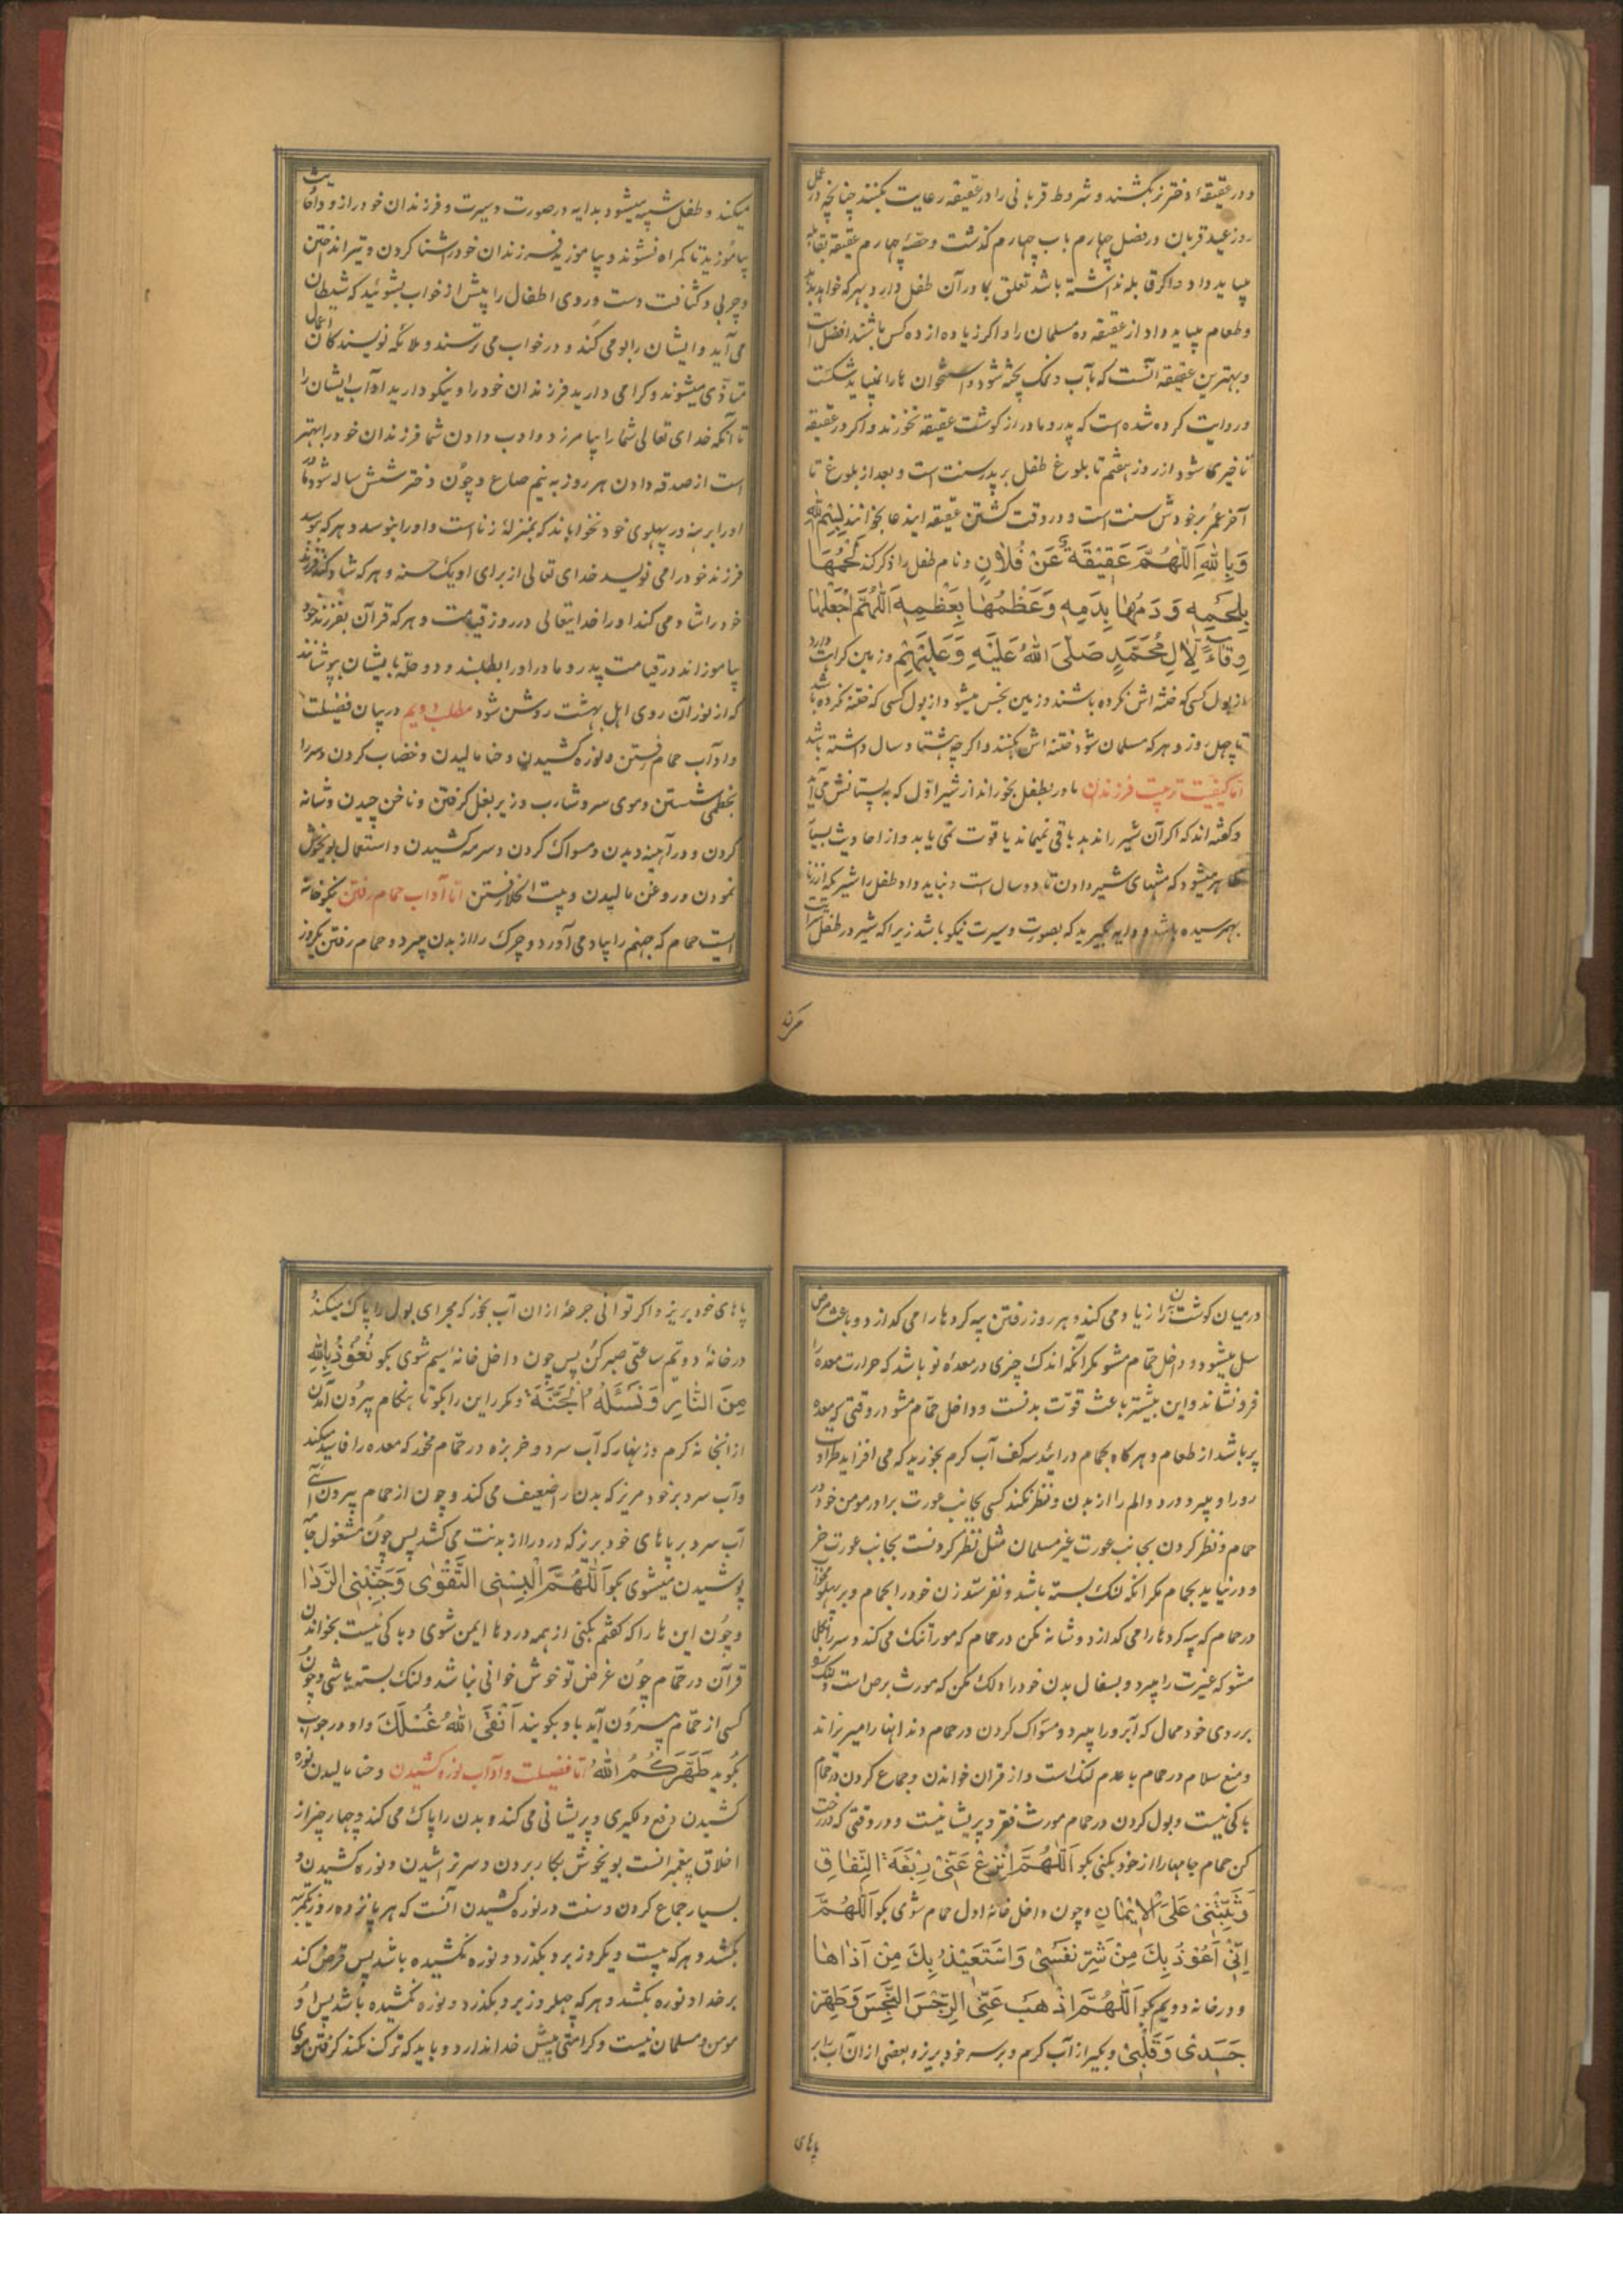 و در عقیقهٔ دختر نر بکشند و شروط قربانی را در عقیقه رعایت بکنند چنانچه در عمل
روز عید قربان در فصل چهارم باب چهارم گذشت و حصهٔ چهارم عقیقه بقابله
میباید داد و اگر قابله نداشته باشد تعلق بمادر آن طفل دارد بهر که خواهد بدهد
و طعام میباید داد از عقیقه ده مسلمان را و اگر زیاده از ده کس باشند افضل است
و بهترین عقیقه آنست که بآب و نمک پخته شود و استخوان ها را نمیباید شکست
و روایت کرده شده است که پدر و مادر از گوشت عقیقه نخورند و اگر در عقیقه
تاخیری شود از روز هفتم تا بلوغ طفل بر پدر سنت است و بعد از بلوغ تا
آخر عمر بر خودش سنت است و در وقت کشتن عقیقه ایندعا بخوانند بِسْمِ اللهِ
وَبِاللهِ اَللّٰهُمَّ عَقِیْقَةٌ عَنْ فُلٰانٍ و نام طفل را ذکر کند لَحْمُهَا
بِلَحْمِهِ وَ دَمُهٰا بِدَمِهِ وَعَظْمُهٰا بِعَظْمِهِ اَللّٰهُمَّ اجْعَلْهٰا
وِقٰاءً لِاٰلِ مُحَمَّدٍ صَلَّی اللهُ عَلَیْهِ وَعَلَیْهِمْ و زمین کراهت دارد
از بول کسی که ختنه اش نکرده باشند و زمین نجس میشود از بول کسی که ختنه نکرده باشد
تا چهل روز و هر که مسلمان شود ختنه اش بکنند و اگر چه هشتاد سال داشته باشد
اما کیفیت تربیت فرزندان مادر بطفل بخوراند از شیر اوّل که به پستانش می آید
و گفته اند که اگر آن شیر را ندهد باقی نمیماند یا قوت نمی یابد و از احادیث بسیار
ظاهر میشود که منتهای شیر دادن تا دو سال است و نباید داد طفل را شیر که از زنا
بهم رسیده باشد و دایه بگیرید که بصورت و سیرت نیکو باشد زیرا که شیر در طفل سرایت
میکند و طفل شبیه میشود بدایه در صورت و سیرت و فرزندان خود را زود احادیث
بیاموزید تا گمراه نشوند و بیاموزید فرزندان خود را شنا کردن و تیر انداختن
و چربی و کثافت دست و روی اطفال را پیش از خواب بشوئید که شیطان
می آید و ایشان را بو می کند و در خواب می ترسند و ملائکه نویسندگان اعمال
متاذی میشوند و گرامی دارید فرزندان خود را و نیکو دارید آداب ایشان را
تا آنکه خدای تعالی شما را بیامرزد و ادب دادن شما فرزندان خود را بهتر
است از صدقه دادن هر روز به نیم صاع و چون دختر شش ساله شود مادر
او را برهنه در پهلوی خود نخواباند که بمنزلهٔ زنا است و او را نبوسد و هر که ببوسد
فرزند خود را می نویسد خدای تعالی از برای او یک حسنه و هر که شاد کند فرزند
خود را شاد می کند او را خدایتعالی در روز قیامت و هر که قرآن بفرزند خود
بیاموزاند در قیامت پدر و مادر او را بطلبند و دو حلّه بایشان بپوشانند
که از نور آن روی اهل بهشت روشن شود مطلب دویم در بیان فضیلت
و اداب حمام رفتن و نوره کشیدن و حنا مالیدن و خضاب کردن و سر را
بخطمی شستن و موی سر و شارب و زیر بغل گرفتن و ناخن چیدن و شانه
کردن و در آیینه دیدن و مسواک کردن و سرمه کشیدن و استعمال بوی خوش
نمودن و روغن مالیدن و بیت الخلا رفتن اما آداب حمام رفتن نیکو خانه
ایست حمام که جهنم را بیاد می آورد و چرک را از بدن میبرد و حمام رفتن یکروز
مرکند
در میان گوشت بدن را زیاد می کند و هر روز رفتن پیه گردها را می گدازد و باعث مرض
سل میشود و داخل حمّام مشو مگر آنکه اندک چیزی در معدهٔ تو باشد که حرارت معده را
فرو نشاند و این بیشتر باعث قوّت بدنست و داخل حمّام مشو در وقتی که معده
پر باشد از طعام و هر گاه بحمام درایند سه کف آب گرم بخورید که می افزاید طراوت
رو را و میبرد درد و الم را از بدن و نظر نکند کسی بجانب عورت برادر مومن خود در
حمام و نظر کردن بجانب عورت غیر مسلمان مثل نظر کردنست بجانب عورت خر
و در نیاید بحمام مگر آنکه لنگ بسته باشد و نفرستد زن خود را بحمام و بر پهلو مخواب
در حمام که پیه گردها را می گدازد و شانه مکن در حمام که مو را تنک می کند و سر را بگل
مشو که غیرت را میبرد و بسفال بدن خود را دلک مکن که مورث برص است و لنگ
بر روی خود ممال که آبرو را میبرد و مسواک کردن در حمام دندانها را میریزاند
و منع سلام در حمام با عدم لنگ است و از قران خواندن و جماع کردن در حمام
باکی نیست و بول کردن در حمام مورث فقر و پریشانیست و در وقتی که در رخت
کن حمام جامها را از خود بکنی بگو اَللّٰهُمَّ انْزِعْ عَنِّیْ رِبْقَةَ النِّفٰاقِ
وَثَبِّتْنِیْ عَلَی الْاِیْمٰانِ و چون داخل خانهٔ اول حمام شوی بگو اَللّٰهُمَّ
اِنِّیْ اَعُوْذُ بِكَ مِنْ شَرِّ نَفْسِیْ وَاَسْتَعِیْذُ بِكَ مِنْ اَذٰاهٰا
و در خانه دویم بگو اَللّٰهُمَّ اذْهَبْ عَنِّی الرِّجْسَ النَّجِسَ وَطَهِّرْ
جَسَدِیْ وَقَلْبِیْ و بگیر از آب گرم و بر سر خود بریز و بعضی از ان آب را بر
پاهای
پاهای خود بریز و اگر توانی جرعهٔ از ان آب بخور که مجرای بول را پاک میکند و
در خانهٔ دویم ساعتی صبر کن پس چون داخل خانهٔ سیم شوی بگو نَعُوْذُ بِاللهِ
مِنَ النّٰارِ وَنَسْئَلُهُ الْجَنَّةَ و مکرر این را بگو تا هنگام بیرون آمدن
از آنخانه گرم و زنهار که آب سرد و خربزه در حمّام مخور که معده را فاسد میکند
و آب سرد بر خود مریز که بدن را ضعیف می کند و چون از حمام بیرون آئی
آب سرد بر پاهای خود بریز که درد را از بدنت می کشد پس چون مشغول جامه
پوشیدن میشوی بگو اَللّٰهُمَّ اَلْبِسْنِی التَّقْوٰی وَجَنِّبْنِی الرَّدٰا
و چون این ها را که گفتم بکنی از همه دردها ایمن شوی و باکی نیست بخواندن
قرآن در حمّام چون غرض تو خوش خوانی نباشد و لنگ بسته باشی و چون
کسی از حمّام بیرون آید باو بگویند اَنْقَی اللهُ غُسْلَكَ و او در جواب
بگوید طَهَّرَكُمُ اللهُ اما فضیلت و آداب نوره کشیدن و حنا مالیدن نوره
کشیدن دفع دلگیری و پریشانی می کند و بدن را پاک می کند و چهار چیز از
اخلاق پیغمبرانست بوی خوش بکار بردن و سر تراشیدن و نوره کشیدن و
بسیار جماع کردن و سنت در نوره کشیدن آنست که هر پانزده روز یکمرتبه
بکشد و هر که بیست و یکروز برو بگذرد و نوره نکشیده باشد پس قرض کند
بر خدا و نوره بکشد و هر که چهل روز برو بگذرد و نوره نکشیده باشد پس او
مومن و مسلمان نیست و کرامتی پیش خدا ندارد و باید که ترک نکند گرفتن موی